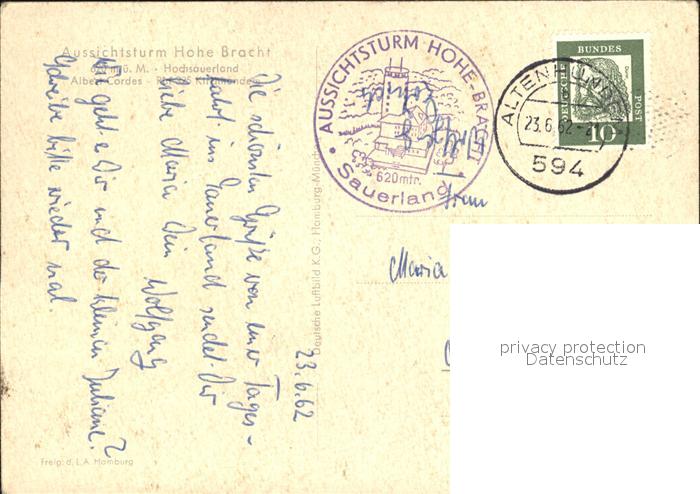 Aussichtsturm Hohe Bracht
M. - Hochsauerland
Albert Cordes -
Die schönsten Grüße von einer Tages-
fahrt ins Sauerland sendet Dir
liebe Maria Dein Wolfgang
Wie geht es Dir und der kleinen Juliane?
Schreibe bitte wieder mal.
23.6.62
Freig. d. L.A. Hamburg
Deutsche Luftbild K.G., Hamburg
AUSSICHTSTURM HOHE-BRACHT
620mtr.
Sauerland
ALTENHUNDEM
23.6.62
594
DEUTSCHE BUNDES POST
10
Maria
privacy protection
Datenschutz